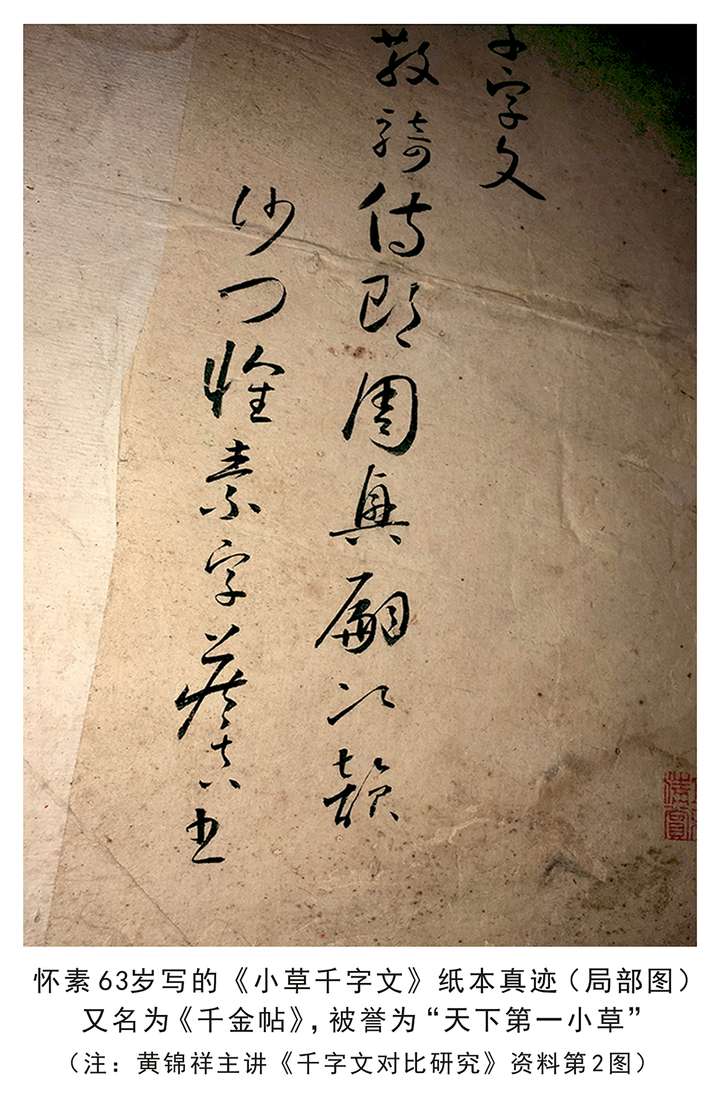 千字文
散騎侍郎周興嗣次韻
沙門懷素字藏真書
怀素63岁写的《小草千字文》纸本真迹（局部图）
又名为《千金帖》，被誉为“天下第一小草”
（注：黄锦祥主讲《千字文对比研究》资料第2图）